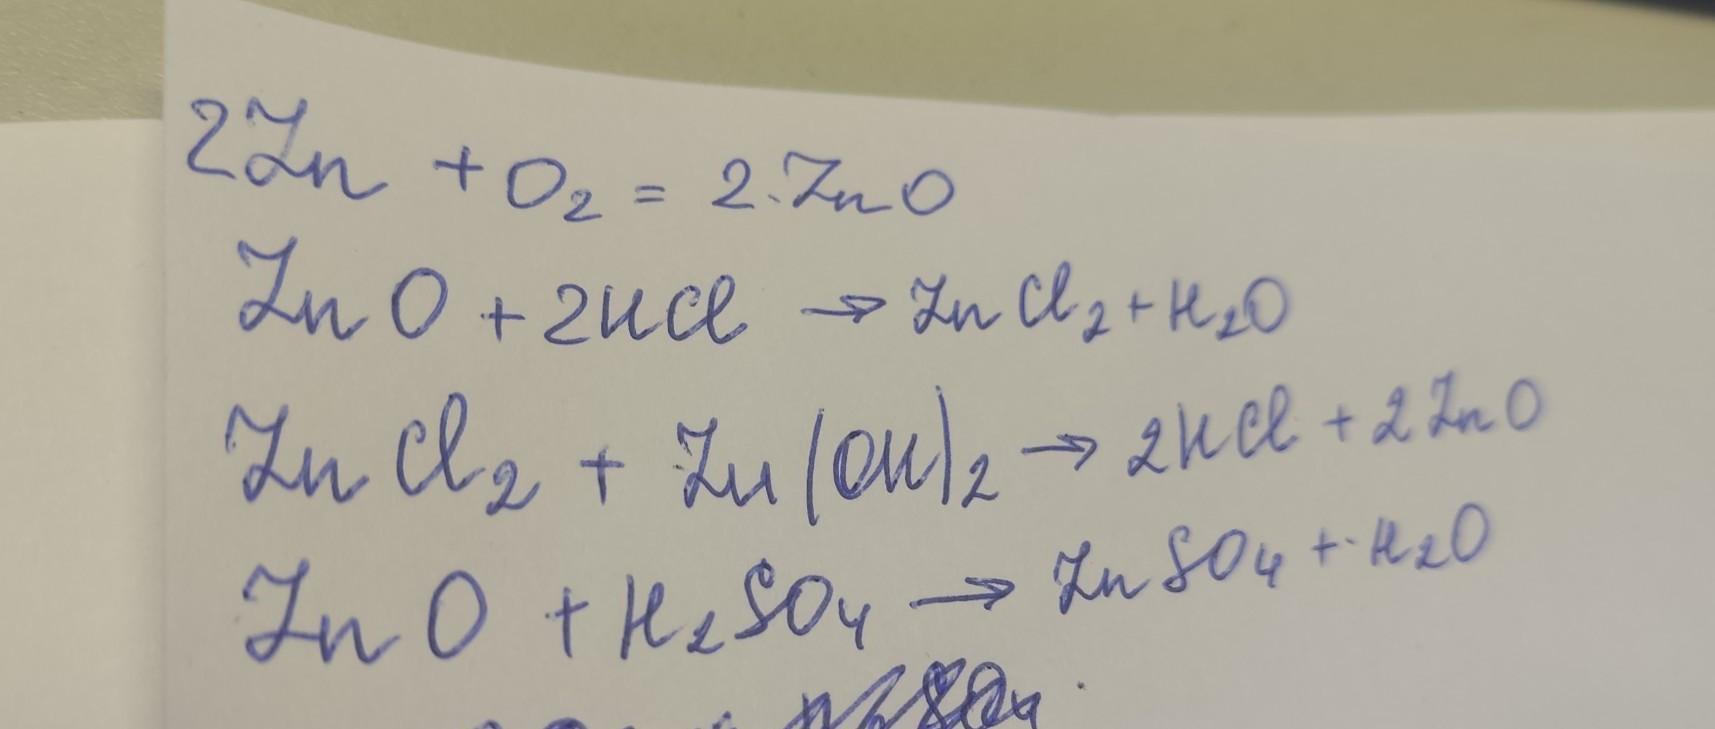 2Zn + O₂ = 2ZnO
ZnO + 2HCl → ZnCl₂ + H₂O
ZnCl₂ + Zn(OH)₂ → 2HCl + 2ZnO
ZnO + H₂SO₄ → ZnSO₄ + H₂O